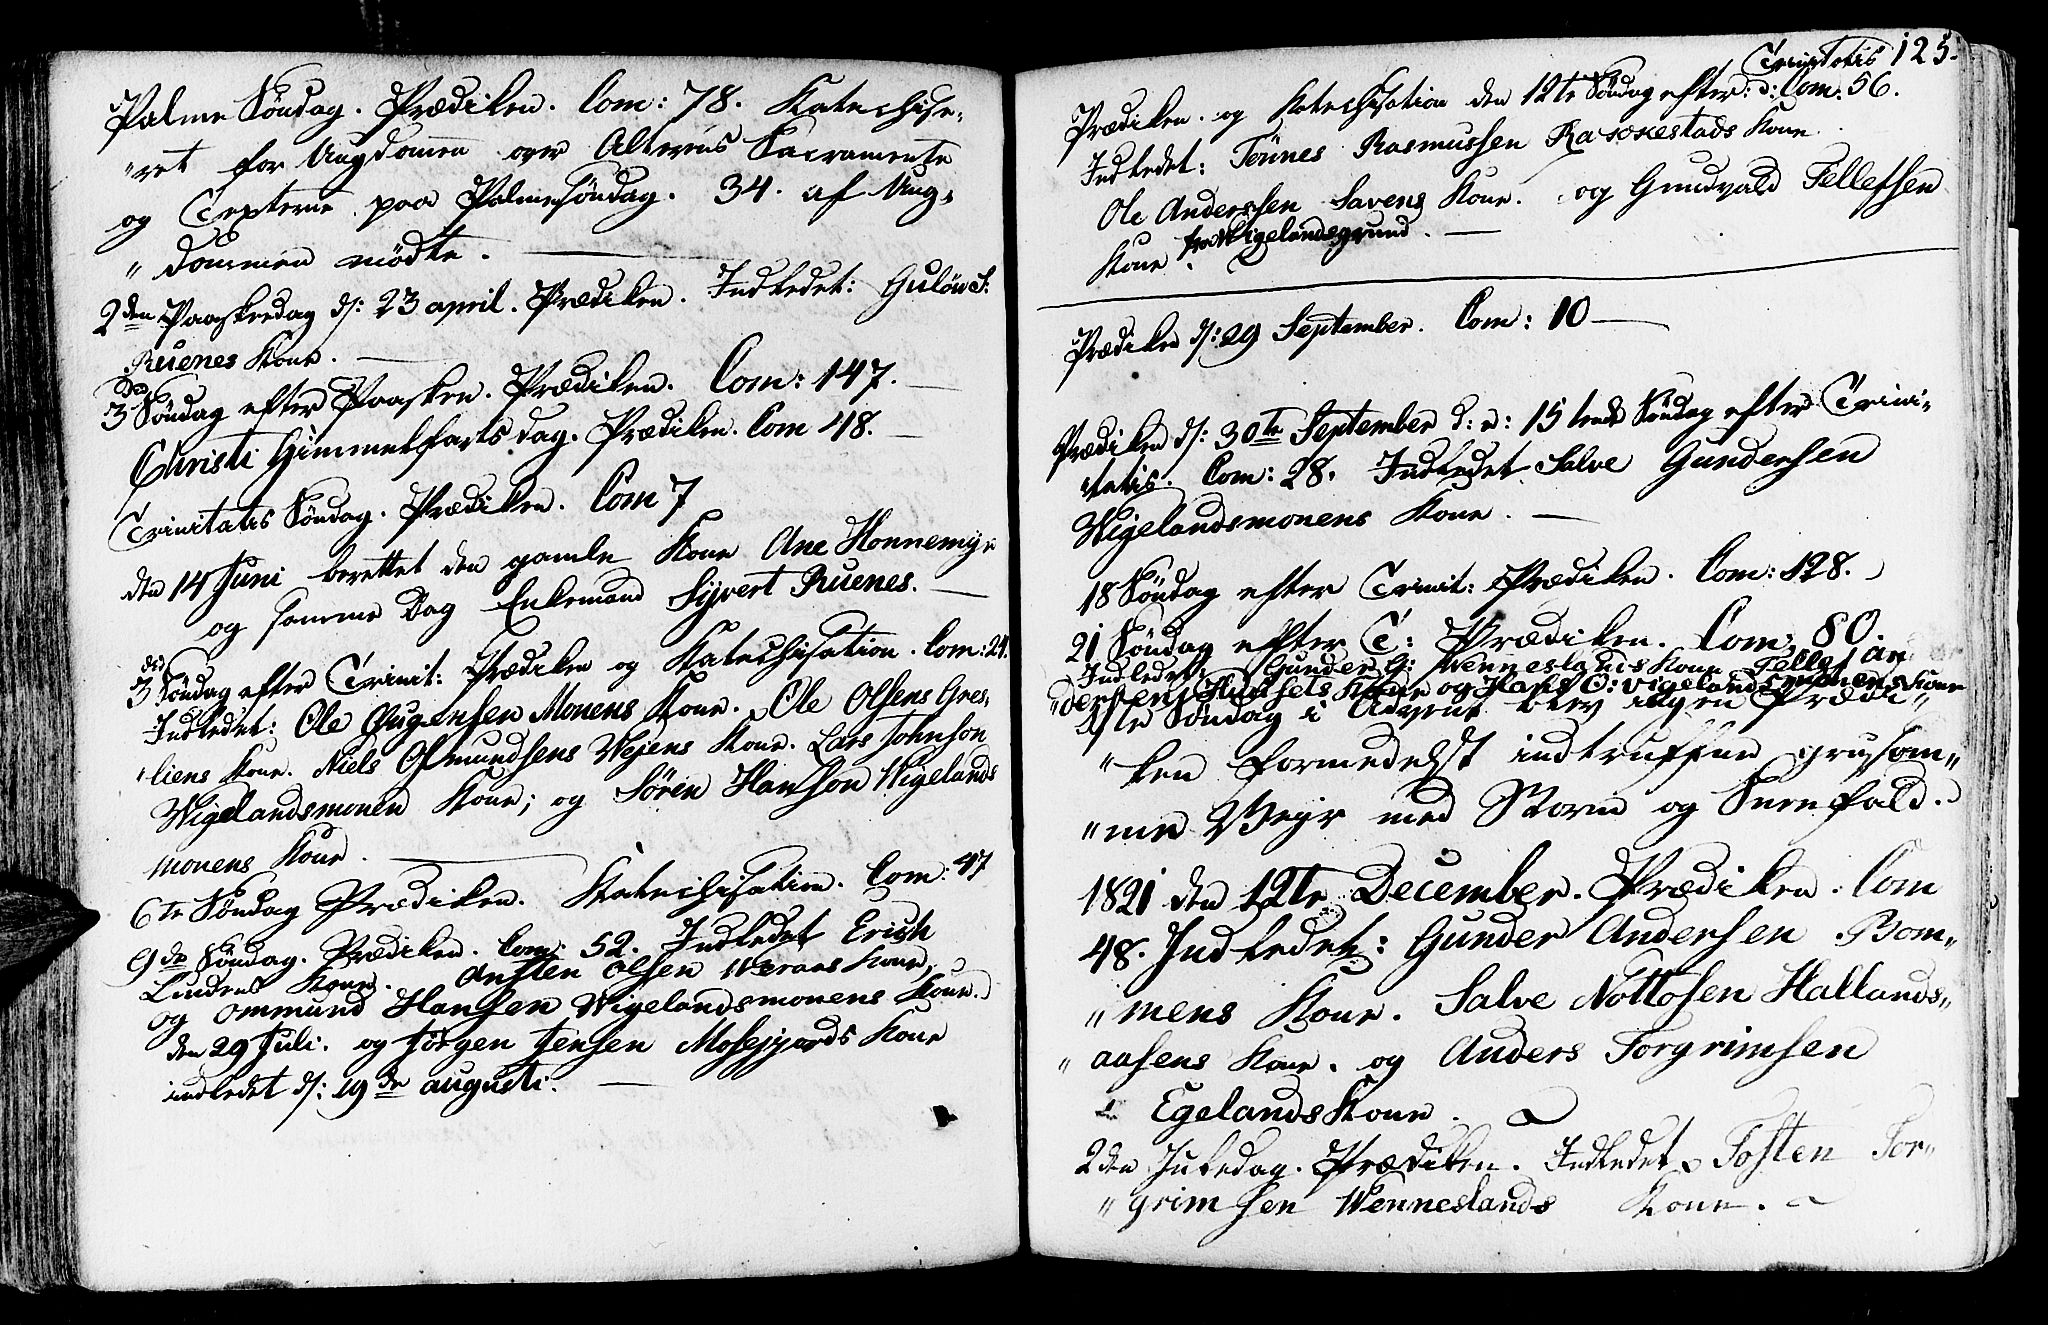 Palme Söndag. Prædiken. Com: 78. Katechise-
"ret for Ungdomen over Alterens Sacramente
og Texterne paa Palmesöndag. 34. af Ung-
"dommen mödte.
2den Paaskedag d: 23 april. Prædiken. Indledet: Gulöw S:
Ruenes Kone.
3die Söndag efter Paasken. Prædiken. Com: 147.
Christi Himmelfarts dag. Prædiken. Com 48.
Trinitatis Söndag. Prædiken. Com 7
den 14 Juni berettet den gamle Kone Ane Honnemyr
og samme Dag Enkemand Syvert Ruenes.
3die Söndag efter Trinit: Prædiken og Katechisation. Com: 24.
Indledet: Ole Augensen Monens Kone. Ole Olsens Gres-
"liens Kone. Niels Osmundsens Wejens Kone. Lars Johnson
Wigelandsmonen Kone; og Sören Hanson Wigelands
monens Kone.
6te Söndag Prædiken. Katechisation. Com: 47
9de Söndag. Prædiken. Com: 52. Indledet Erich
Lindens Kone. Ansten Olsen Weraas Kone,
og Ommund Hansen Wigelandsmonens Kone.
den 29 Juli. og Jörgen Jensen Mosejords Kone
indledet d: 19de augusti.
125.
Trinitatis
Prædiken og Katechisation den 12te Söndag efter: d: Com: 56.
Indledet: Tönnes Rasmussen Rakkestads Kone
Ole Anderssen Savens Kone. og Gundvald Tellefsen
Kone fra Wigelandsgrund.
Prædiken d: 29 September. Com: 10
Prædiken d: 30te September d: e: 15tende Söndag efter Trini-
"tatis. Com: 28. Indledet Salve Gundersen
Wigelandsmonens Kone.
18 Söndag efter Trinit: Prædiken. Com: 128.
21 Söndag efter T: Prædiken. Com: 80.
Indledet: Gunder G: Wenneslands Kone Tellef An
"dersens Kone og Hans O: Vigelandsmonens Kone
1ste Söndag i Advent blev ingen Prædi-
"ken formedelst indtruffen grusom-
"me Vejr med Storm og Sneefald.
1821 den 12te December. Prædiken. Com
48. Indledet: Gunder Andersen Bom-
"mens Kone. Salve Nottosen Hallands-
"aasens Kone. og Anders Torgrimsen
Egelands Kone.
2den Juledag. Prædiken. Indledet Tosten Tor-
"grimsen Wenneslands Kone.